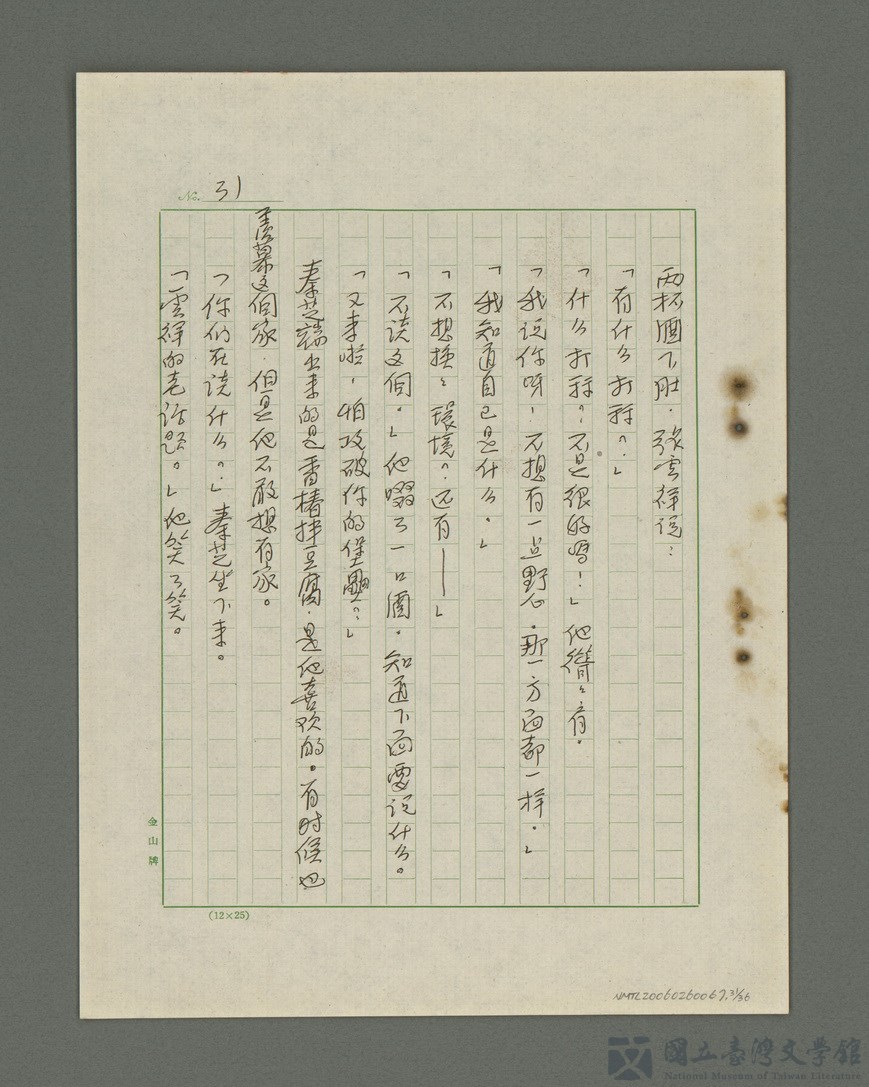 No. 31
两杯酒下肚．張雲祥说：
「有什么打祘？」
「什么打祘？不是很好嗎！」他聳聳肩．
「我说你呀！不想有一点野心．那一方面都一样．」
「我知道自己是什么．」
「不想換々環境？还有──」
「不谈这個．」他啜了一口酒．知道下面要说什么。
「又来啦，怕攻破你的堡壘？」
秦芝端出来的是香椿拌豆腐．是他喜欢的。有时候也
羨慕这個家．但是他不敢想有家。
「你们在谈什么？」秦芝坐下来。
「雲祥的老話题。」他笑了笑。
金山牌
(12×25)
NMTL20060260067,31/36
國立臺灣文學館
National Museum of Taiwan Literature